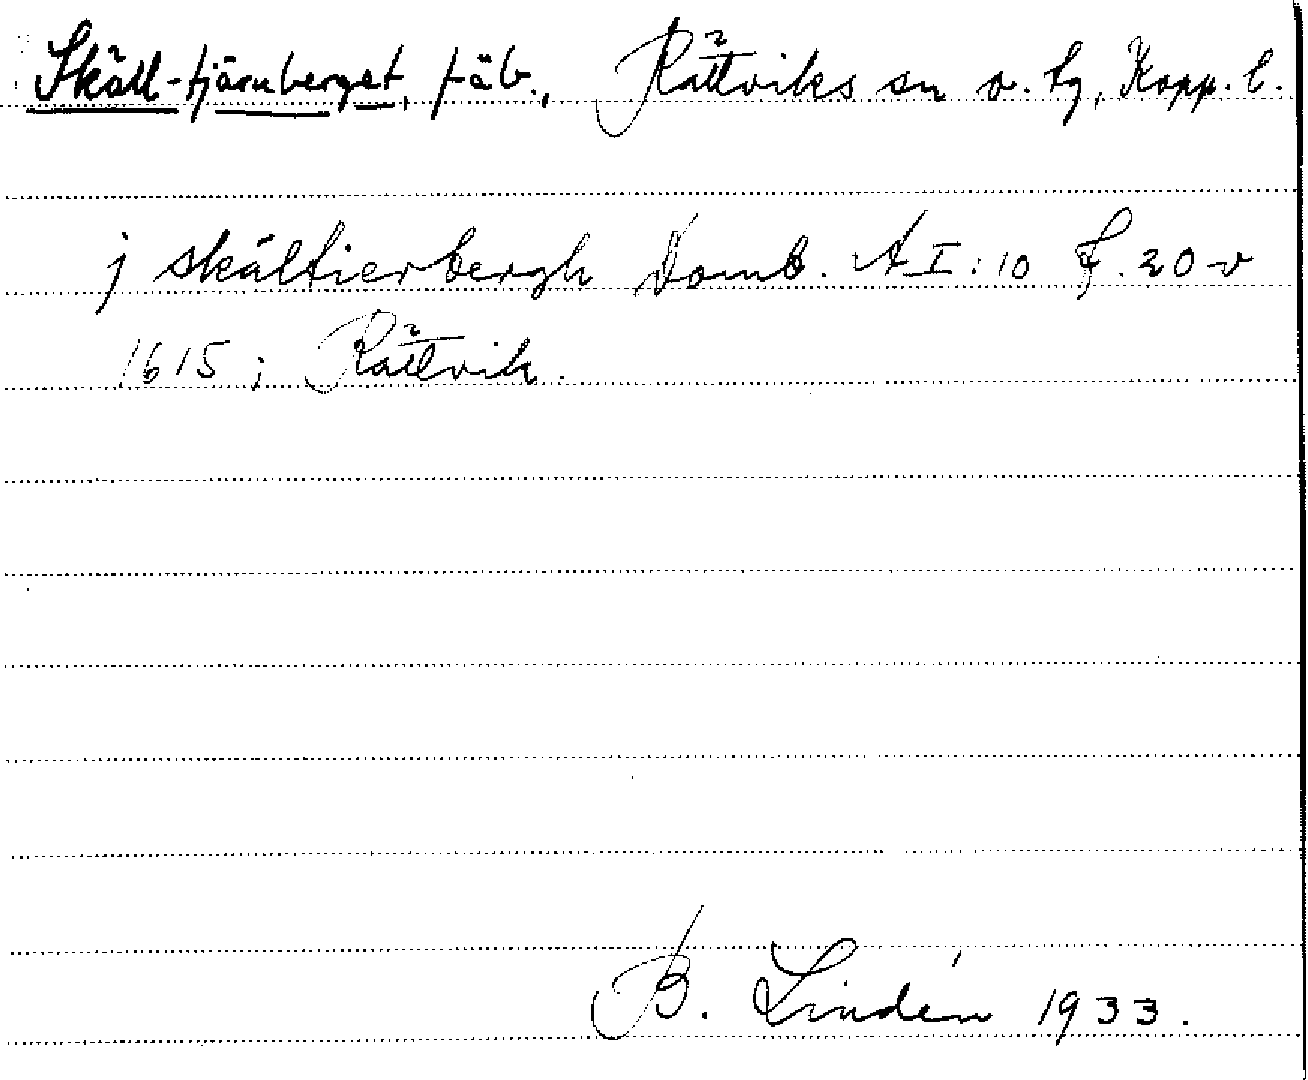 Skäll-tjärnberget, fäb., Rättviks sn o. tg, Kopp. l.
j skältierbergh Domb. A I:10 f. 20 v
1615; Rättvik.
B. Lindén 1933.